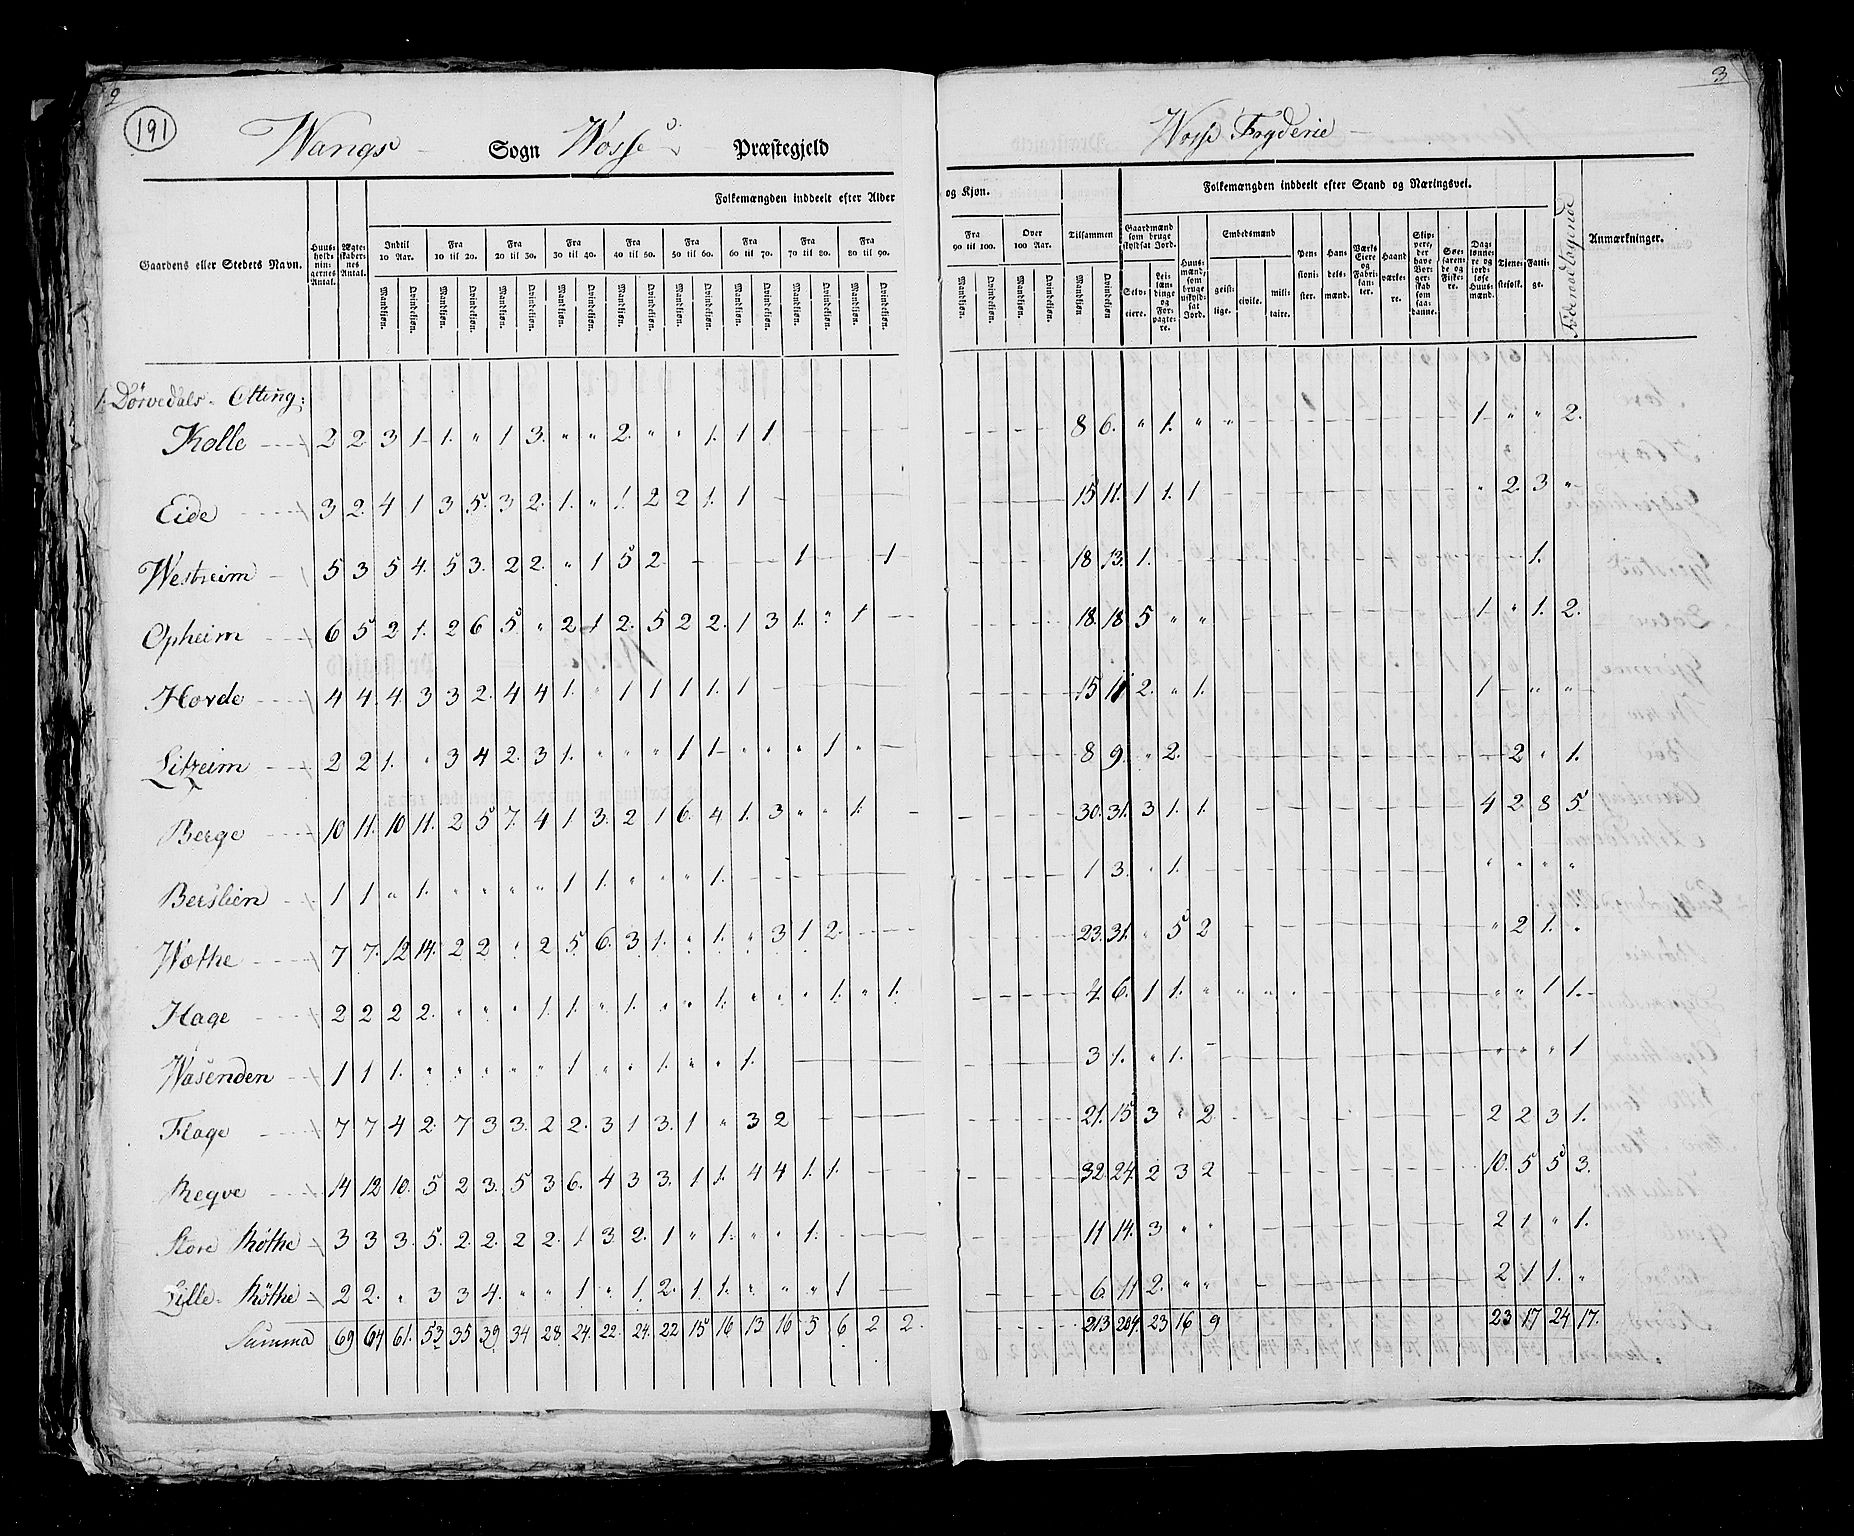 2
191
Wangs Sogn Wosse Præstegjeld
Folkemængden inddeelt efter Alder
Gaardens eller Stedets Navn.
Huus-holdnin-gernes Antal.
Ægte-skaber-nes Antal.
Indtil 10 Aar.
Fra 10 til 20.
Fra 20 til 30.
Fra 30 til 40.
Fra 40 til 50.
Fra 50 til 60.
Fra 60 til 70.
Fra 70 til 80.
Fra 80 til 90.
Mandkjøn. Qvindekjøn. Mandkjøn. Qvindekjøn. Mandkjøn. Qvindekjøn. Mandkjøn. Qvindekjøn. Mandkjøn. Qvindekjøn. Mandkjøn. Qvindekjøn. Mandkjøn. Qvindekjøn. Mandkjøn. Qvindekjøn. Mandkjøn. Qvindekjøn.
1. Dörvedals Otting:
Kolle 2 2 3 1 1 " 1 3 " " 2 " " 1 1 1
Eide 3 2 4 1 3 5 3 2 1 " 1 2 2 1 1
Westreim 5 3 5 4 5 3 2 2 " 1 5 2 - - - - 1 - - 1
Opheim 6 5 2 1 2 6 5 " 2 1 2 5 2 2 1 3 1 " 1 -
Horde 4 4 4 3 3 2 4 4 1 " 1 1 1 1 1
Litzeim 2 2 1 " 3 4 2 3 1 " " " 1 1 " " " 1 " -
Berge 10 11 10 11 2 5 7 4 1 3 2 1 6 4 1 3 " " 1 -
Berslien 1 1 " 1 " " " " 1 1 " " " 1
Wæthe 7 7 12 14 2 2 " 2 5 6 3 1 " 1 " 3 1 2
Hage 2 2 2 2 " " " 1 1 " 1 " " 1 " " " 1 " 1
Wasenden 1 1 1 " " " " " 1 " " 1 " " 1
Flage 7 7 4 2 7 3 3 2 2 3 1 3 1 " 3 2
Reqve 14 12 10 5 2 3 5 3 6 4 3 3 1 1 4 4 1 1
Store Röthe 3 3 3 5 2 2 2 2 1 3 2 1 " 1 " " 1
Lille Röthe 2 2 " 3 3 4 " " 1 " 1 2 1 1 " " " 1
Summa 69 64 61 53 35 39 34 28 24 22 24 22 15 16 13 16 5 6 2 2
3
Woss Fogderie
og Kjøn.
Folkemængden inddeelt efter Stand og Næringsvei.
Fra 90 til 100.
Over 100 Aar.
Tilsammen
Gaardmænd som bruge skyldsat Jord.
Huus-mænd, som bruge uskyldsat Jord.
Embedsmænd
Mandkjøn. Qvindekjøn. Mandkjøn. Qvindekjøn. Mandkjøn. Qvindekjøn.
Selv-eiere.
Lei-lændinge og For-pagtere.
geist-lige.
civile.
mili-taire.
Pen-sioni-ster.
Han-dels-mænd.
Værks Eiere og Fabri-kanter.
Haand værke-re.
Skip-pere, der have Bor-ger-skab som saa-danne.
Søe-faren-de og Fiske-re.
Dag-lønne-re og jord-løse Huus-mænd.
Tjene-stefolk.
Fatti-ge.
Föderaadtagende
Anmærkninger.
8 6 " 1 " " 1 " " 2
15 11 1 1 1 " 2 3 "
18 13 1 1
18 18 5 " " 1 " 1 2
15 11 2 " 1 1 " " "
8 9 " 2 - 2 " 1
30 31 3 1 1 4 2 8 5
1 3 " 1 " " " "
23 31 " 5 2 " 2 1 "
4 6 1 1 " " " " " " 1 1
3 1 " 1 - " " " 1
21 15 3 " 2 2 2 3 1
32 24 2 3 2 10 5 5 3
11 14 3 " " 2 1 " 1
6 11 2 " " 2 1 1 "
213 204 23 16 9 23 17 24 17